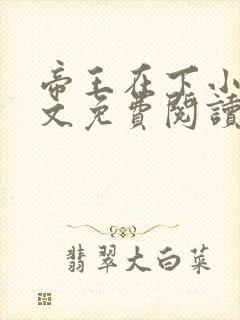 帝王在下小
文免費閱讀
翡翠大白菜